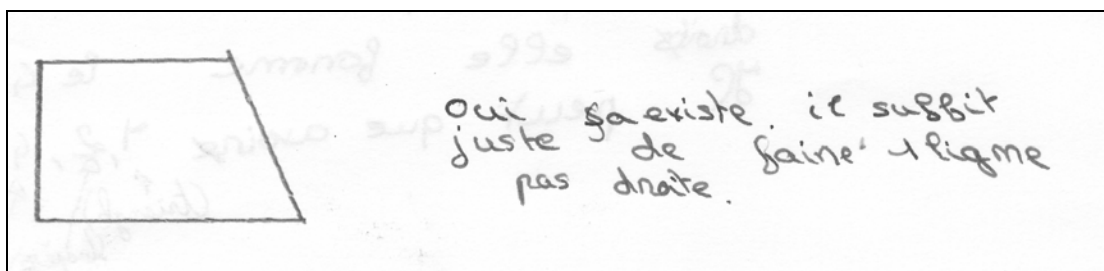 Oui ça existe. il suffit
juste de faire 1 ligne
pas droite.